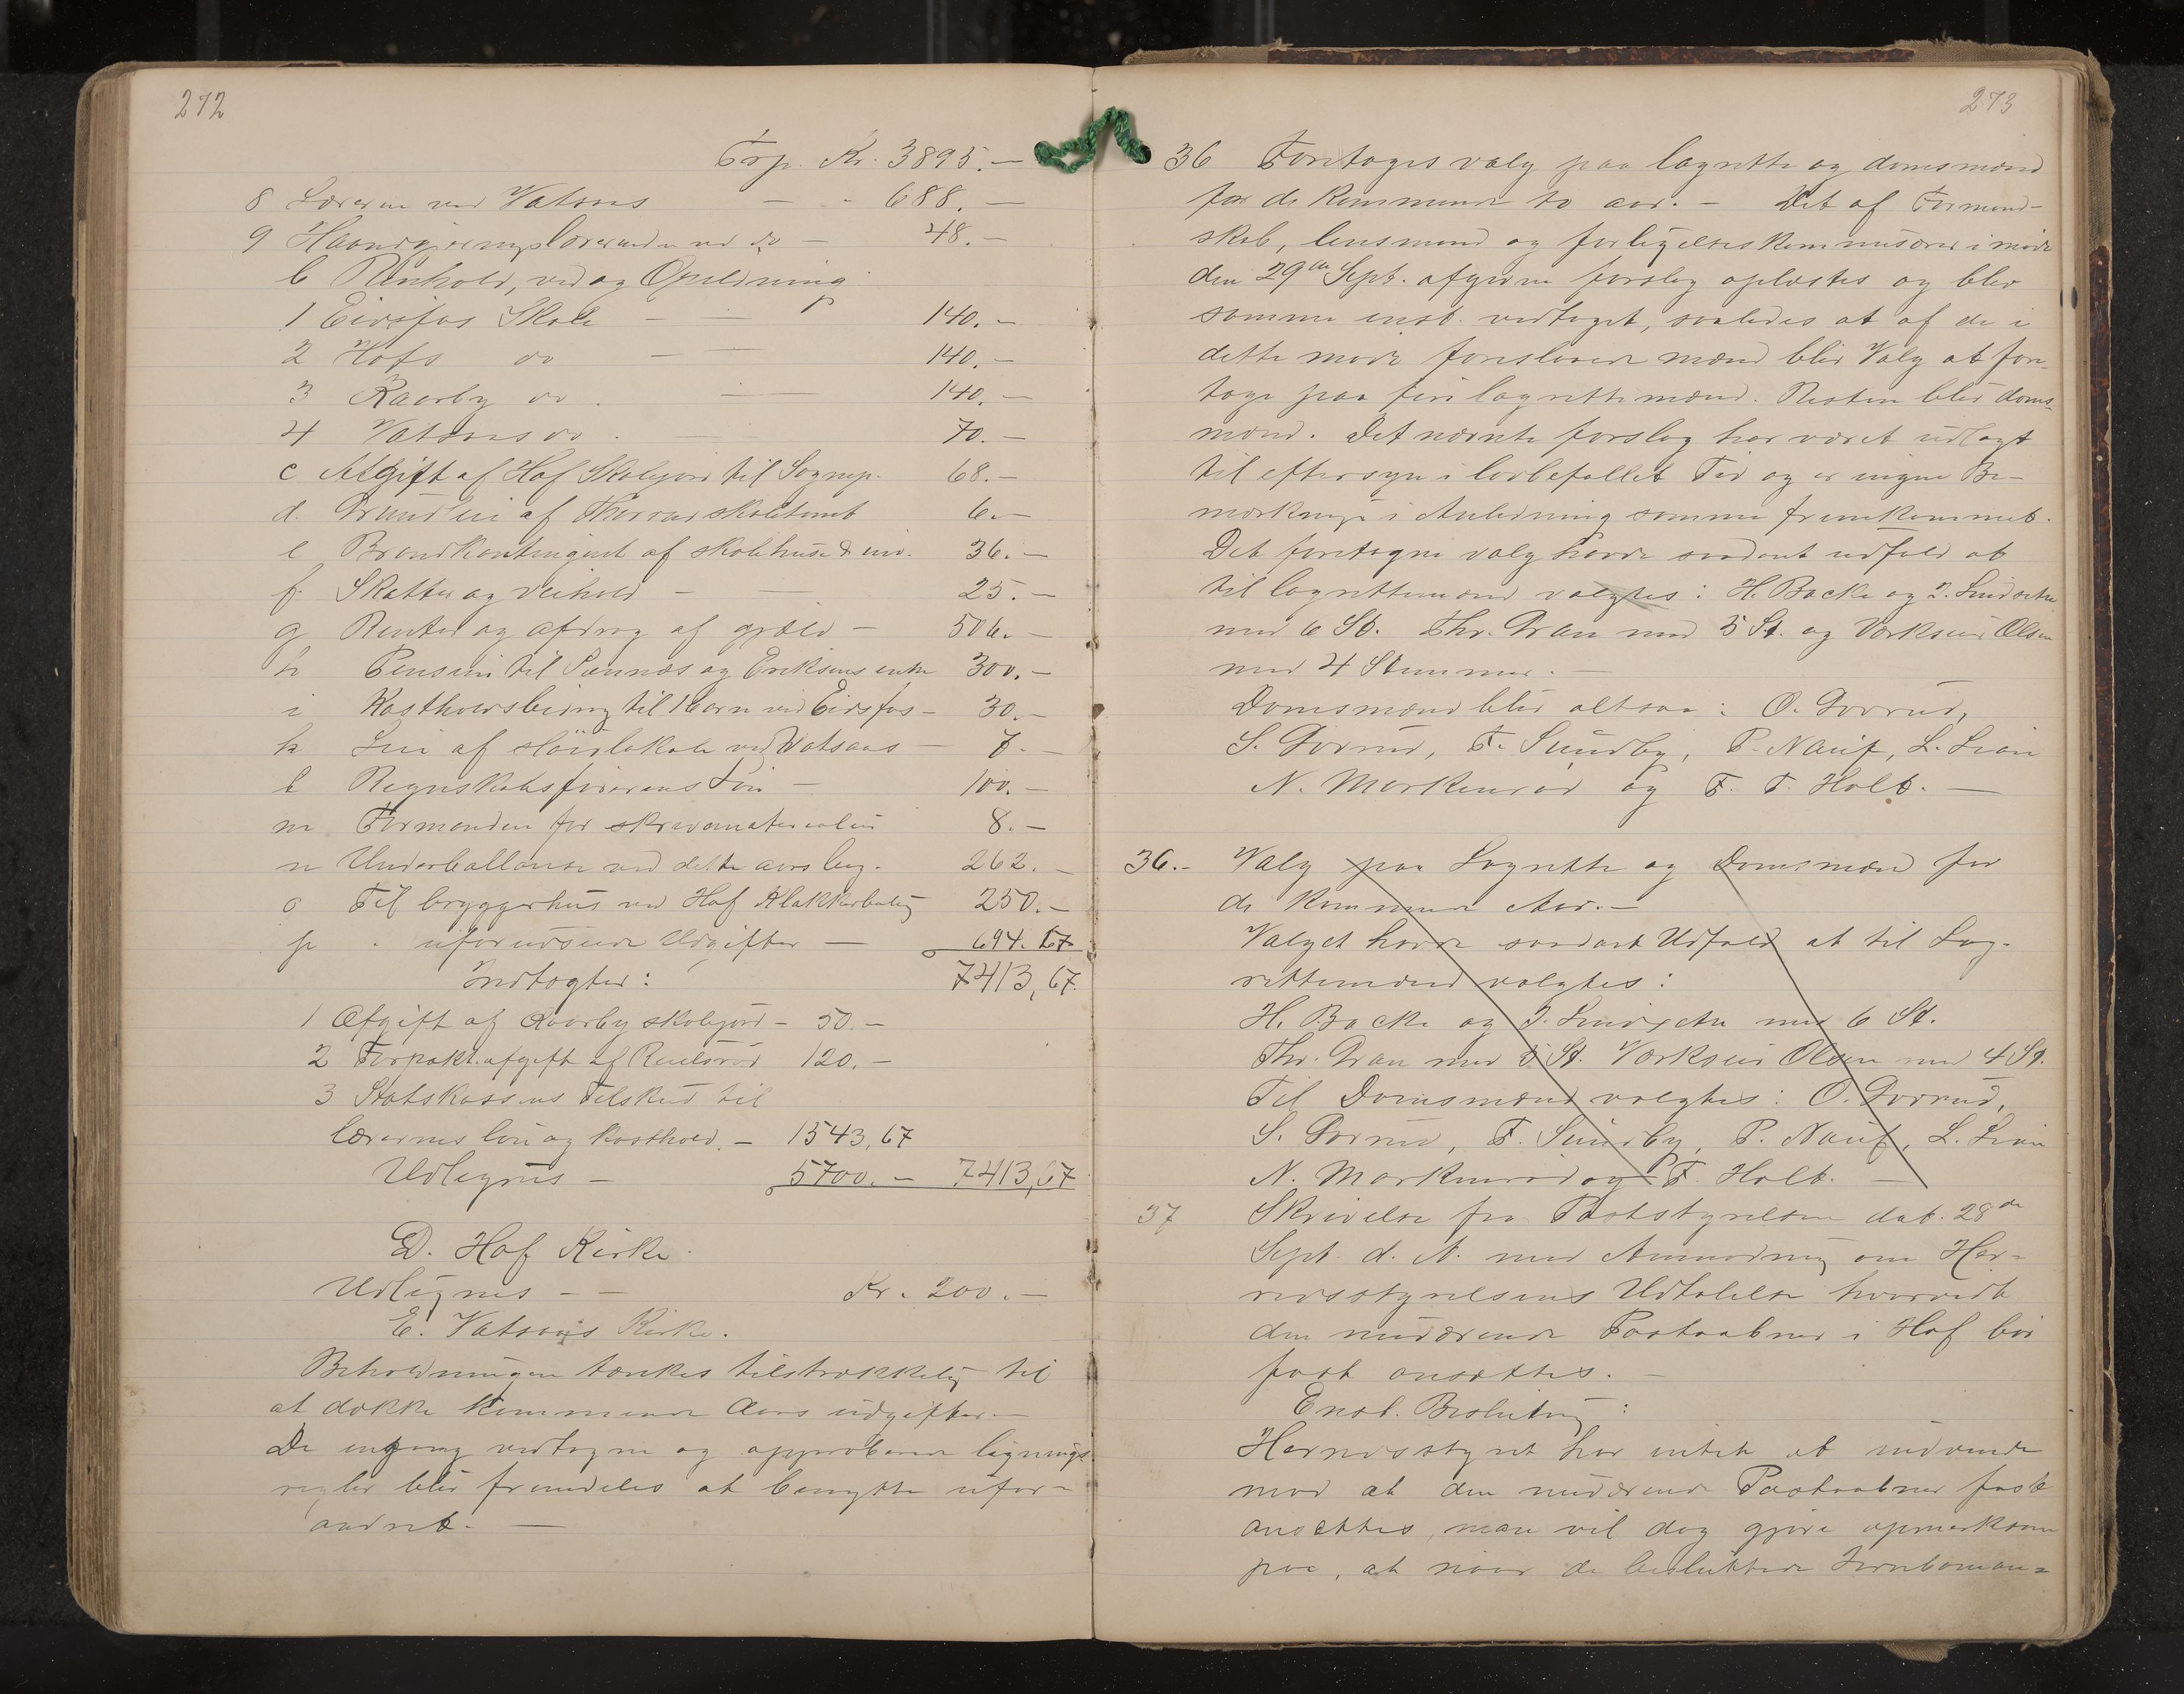 272
Trsp. Kr. 3895.—
8 Læreren ved Vatsaas — - 688.—
9 Haandgjerningslærerinden ved do — 48.—
b Renhold, ved og Opildning
1 Eidsfos Skole — — 140.—
2 Hofs do — — 140.—
3 Kaarby do. — 140.—
4 Vatsaas do. 70.—
c Afgift af Hof Skolejord til Sognep. 68.—
d. Grundleie af skoletomt 6.—
e Brandkontingent af skolehuse & inv. 36.—
f. Skatter og Veihold — — 25.—
g Renter og afdrag af gjæld — 506.—
h Pension til Sannæs og Eriksens enke 300.—
i Kostholdsbidrag til 1 barn ved Eidsfos — 30.—
k Leie af sløidlokale ved Vatsaas — 7.—
l Regnskabsførerens Løn — 100.—
m Formanden for skrivematerialier 8.—
n Underballanse ved dette aars beg. 262.—
o Til bryggerhus ved Hof Klokkerbolig 250.—
p - uforudseede Udgifter — 694.67
Indtægter: 7413,67.
1 Afgift af Kaarby skolejord — 50.—
2 Forpakt.afgift af 120.—
3 Statskassens Tilskud til
lærernes løn og kosthold. — 1543,67
Udlignes — 5700.— 7413,67
D. Hof Kirke.
Udlignes — — Kr. 200.—
E. Vatsaas Kirke.
Beholdningen tænkes tilstrækkelig til
at dække kommende Aars udgifter.—
De engang vedtagne og approberede lignings-
regler blir fremdeles at benytte ufor-
andret.—
273
36 Foretoges valg paa lagrette og domsmænd
for de kommende to aar. — Det af Formand-
skab, lensmand og forligelseskommissærer i møde
den 29de Sept. afgivne forslag oplæstes og blev
samme enst. vedtaget, saaledes at af de i
dette møde foreslaaede mænd blir Valg at fore-
tage paa fire lagrettemænd. Resten blir doms-
mænd. Det nævnte forslag har været udlagt
til eftersyn i lovbefallet Tid og er ingen Be-
mærkning i Anledning samme fremkommet.
Det foretagne valg havde saadant udfald at
til lagrettemænd valgtes: H. Backe og J. Lindsetre
med 6 St. Thr. Gran med 5 St. og Værkseier Olsen
med 4 Stemmer.—
Domsmænd blir altsaa: O. Gorrud,
S. Gorrud, F. Sundby, P. Nauf, L. Lian
N. Markerud og F. T. Holt.—
36.— Valg paa Lagrette og Domsmænd for
de kommende Aar.—
Valget havde saadant Udfald at til Lag-
rettemænd valgtes:
H. Backe og J. Lindsetre med 6 St.
Thr. Gran med 5 St. Værkseier Olsen med 4 St.
Til Domsmænd valgtes: O. Gorrud,
S. Gorrud, F. Sundby, P. Nauf, L. Lian
N. Markerud og F. Holt.—
37 Skrivelse fra Poststyrelsen dat. 28de
Sept. d. A. med Anmodning om Her-
redsstyrelsens Udtalelse hvorvidt
den nuværende Postaabner i Hof bør
fast ansættes.—
Enst. Beslutning:
Herredsstyret har intet at indvende
mod at den nuværende Postaabner fast
ansættes, man vil dog gjøre opmærksom
paa, at naar de besluttede Jernbanean=